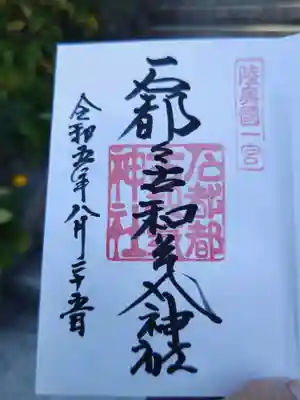 陸奥國一宮
石都々古和氣神社
石都都
神社
令和五年八月二十五日